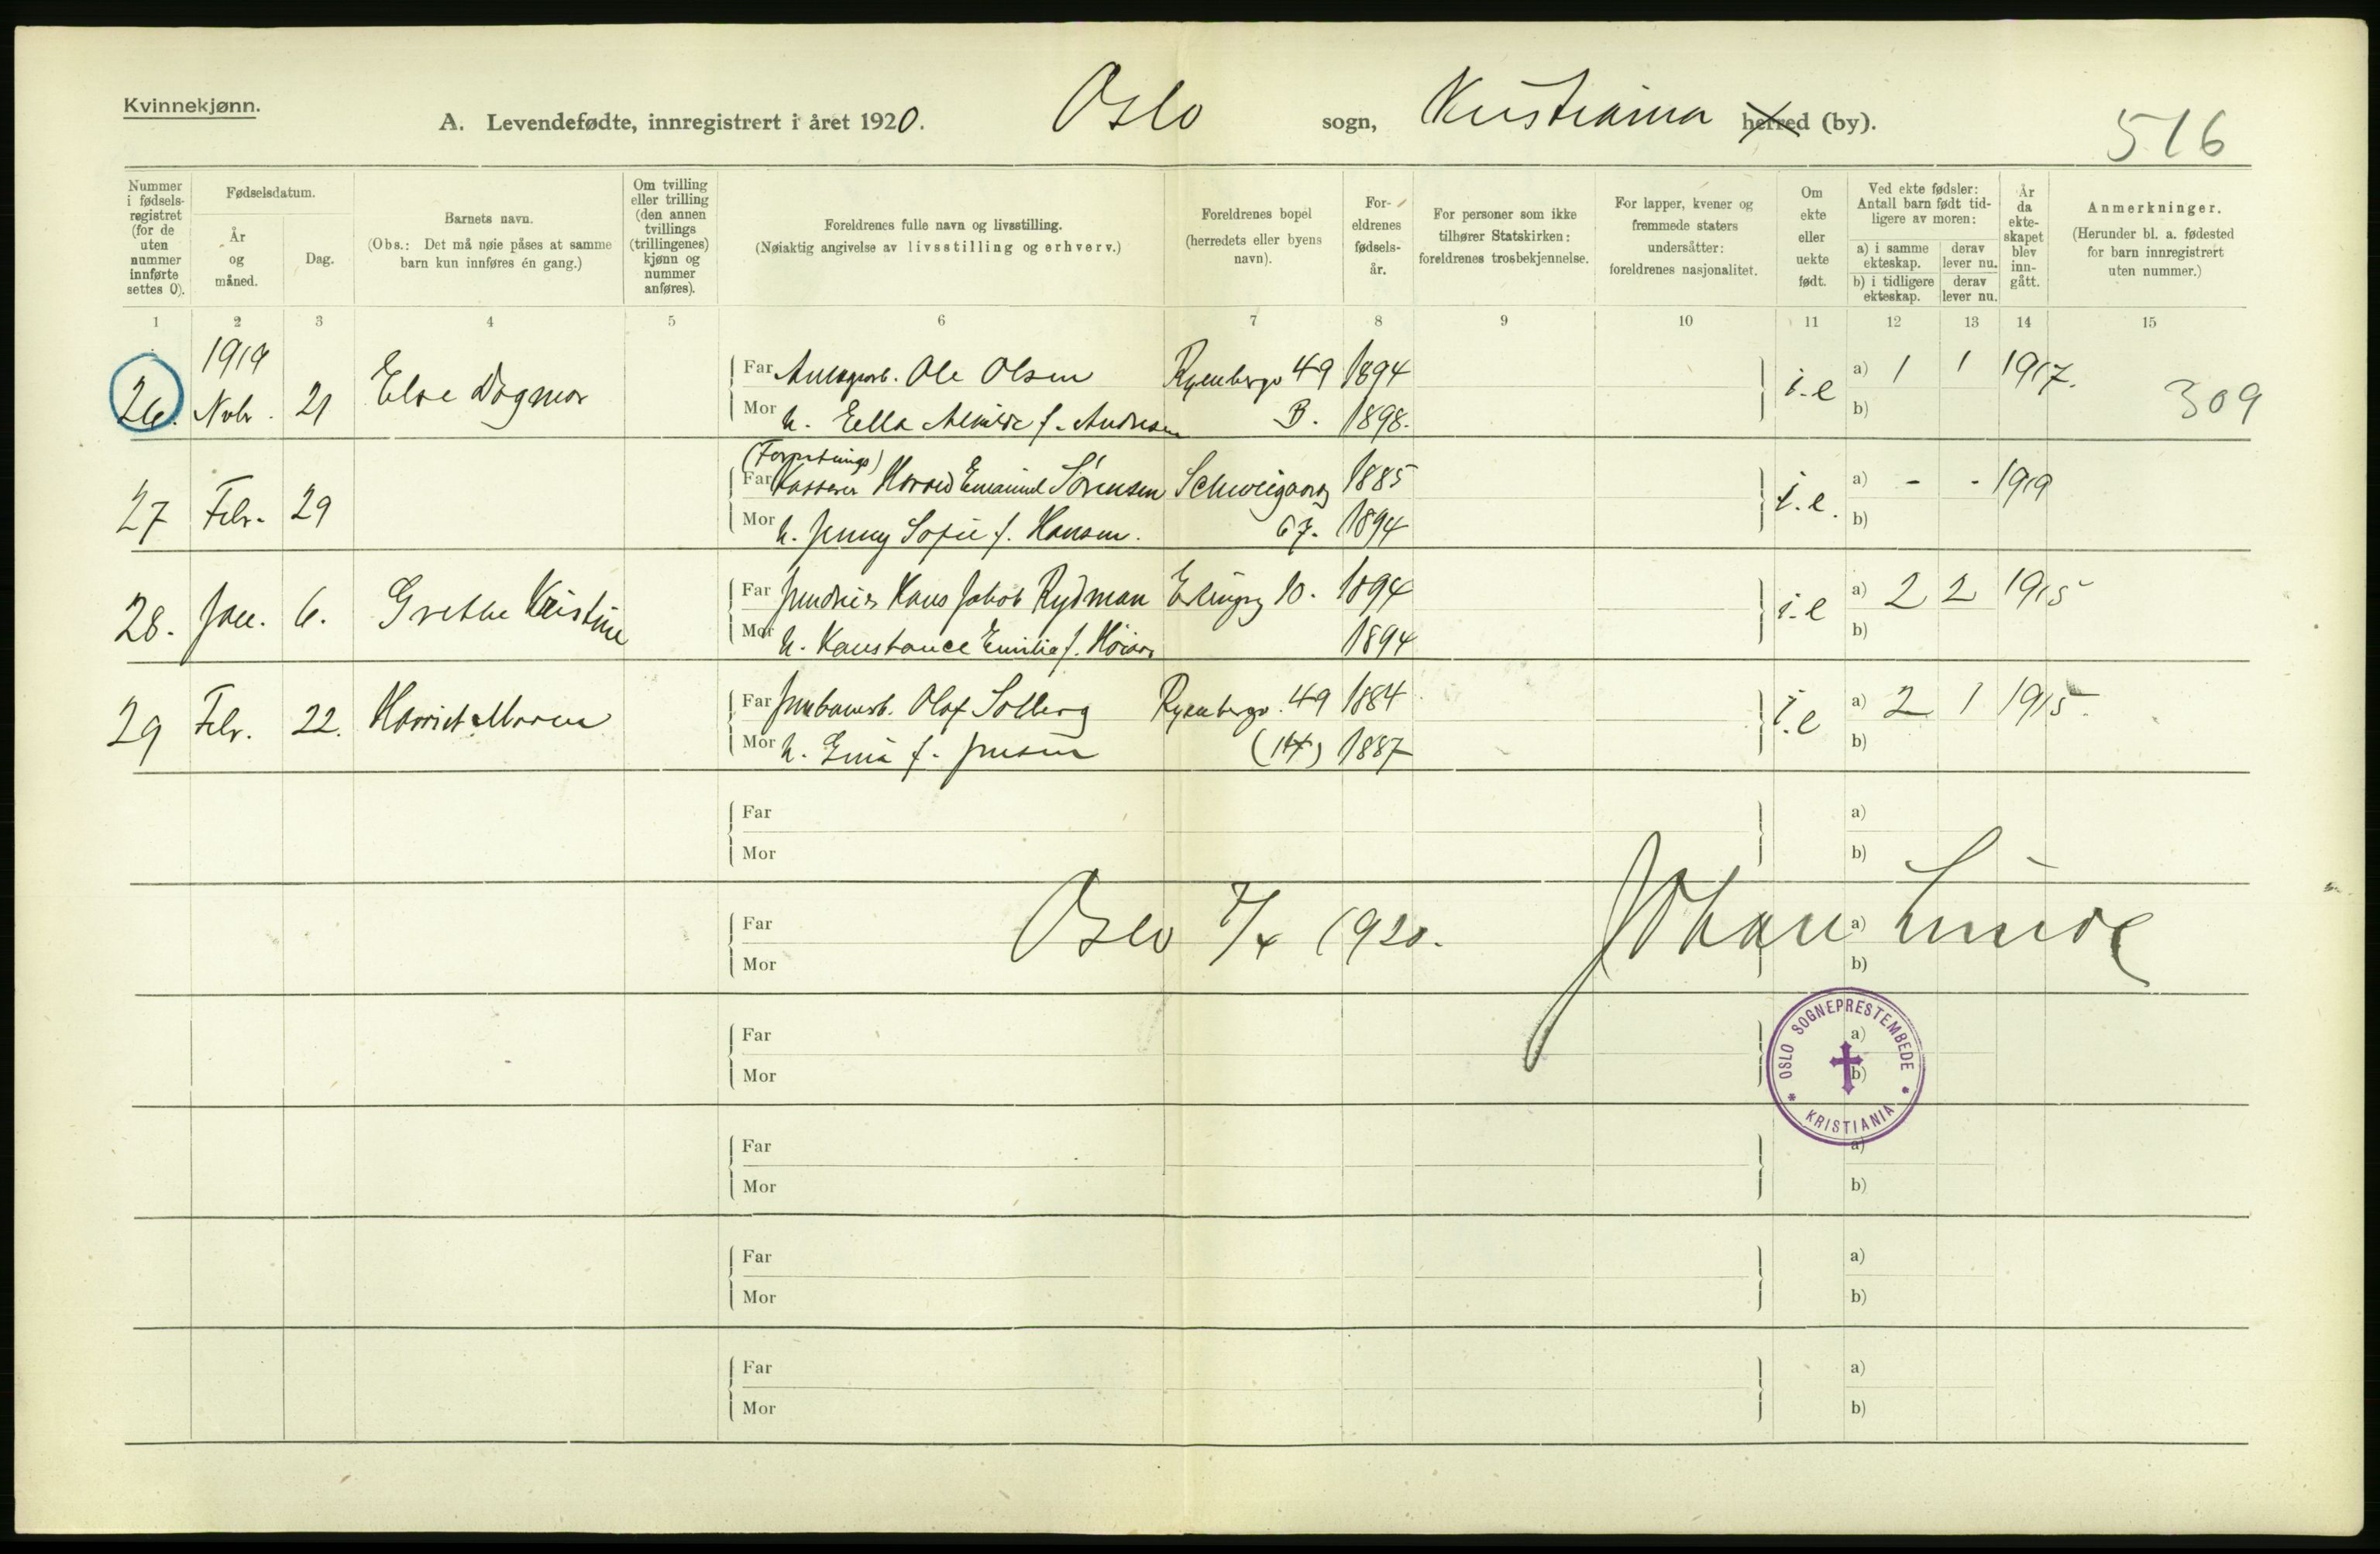 Kvinnekjønn.
A. Levendefødte, innregistrert i året 1920. Oslo sogn, Kristiania herred (by). 516
Nummer i fødsels-registret (for de uten nummer innførte settes 0).
Fødselsdatum.
År og måned.
Dag.
Barnets navn.
(Obs.: Det må nøie påses at samme barn kun innføres én gang.)
Om tvilling eller trilling (den annen tvillings (trillingenes) kjønn og nummer anføres).
Foreldrenes fulle navn og livsstilling.
(Nøiaktig angivelse av livsstilling og erhverv.)
Foreldrenes bopel (herredets eller byens navn).
For-eldrenes fødsels-år.
For personer som ikke tilhører Statskirken: foreldrenes trosbekjennelse.
For lapper, kvener og fremmede staters undersåtter: foreldrenes nasjonalitet.
Om ekte eller uekte født.
Ved ekte fødsler: Antall barn født tid-ligere av moren:
a) i samme ekteskap. derav lever nu.
b) i tidligere ekteskap. derav lever nu.
År da ekte-skapet blev inn-gått.
Anmerkninger.
(Herunder bl. a. fødested for barn innregistrert uten nummer.)
1 2 3 4 5 6 7 8 9 10 11 12 13 14 15
1919
26. Novbr. 21 Else Dagmor Far Ole Olsen Ryenbergv 49 1894 i.e a) 1 1 1917. 309
Mor h. Ella f. Andresen B. 1898. b)
(Forretnings)
27 Febr. 29 Far Kasserer Harald Emanuel Sørensen Schweigaardsg 1885 i.e. a) - - 1919
Mor h. Jenny Sofie f. Hansen. 67. 1894 b)
28. Jan. 6. Grethe Kristine Far Hans Jakob Rydman Erlingsg 10. 1894 i.e a) 2 2 1915
Mor h. Konstance Emilie f. 1894 b)
29 Febr. 22. Harriet Maren Far Jernbanearb. Olaf Solberg Ryenbergv. 49 1884 i.e a) 2 1 1915.
Mor h. Emma f. Jensen (H) 1887 b)
Far a)
Mor b)
Oslo 7/4 1920. Johan Lunde
Far a)
Mor b)
Far a)
Mor b)
OSLO SOGNEPRESTEMBEDE * KRISTIANIA *
Far a)
Mor b)
Far a)
Mor b)
Far a)
Mor b)